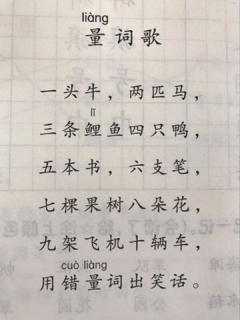 liàng
量词歌
一头牛，两匹马，
lǐ
三条鲤鱼四只鸭，
五本书，六支笔，
七棵果树八朵花，
九架飞机十辆车，
cuò liàng
用错量词出笑话。